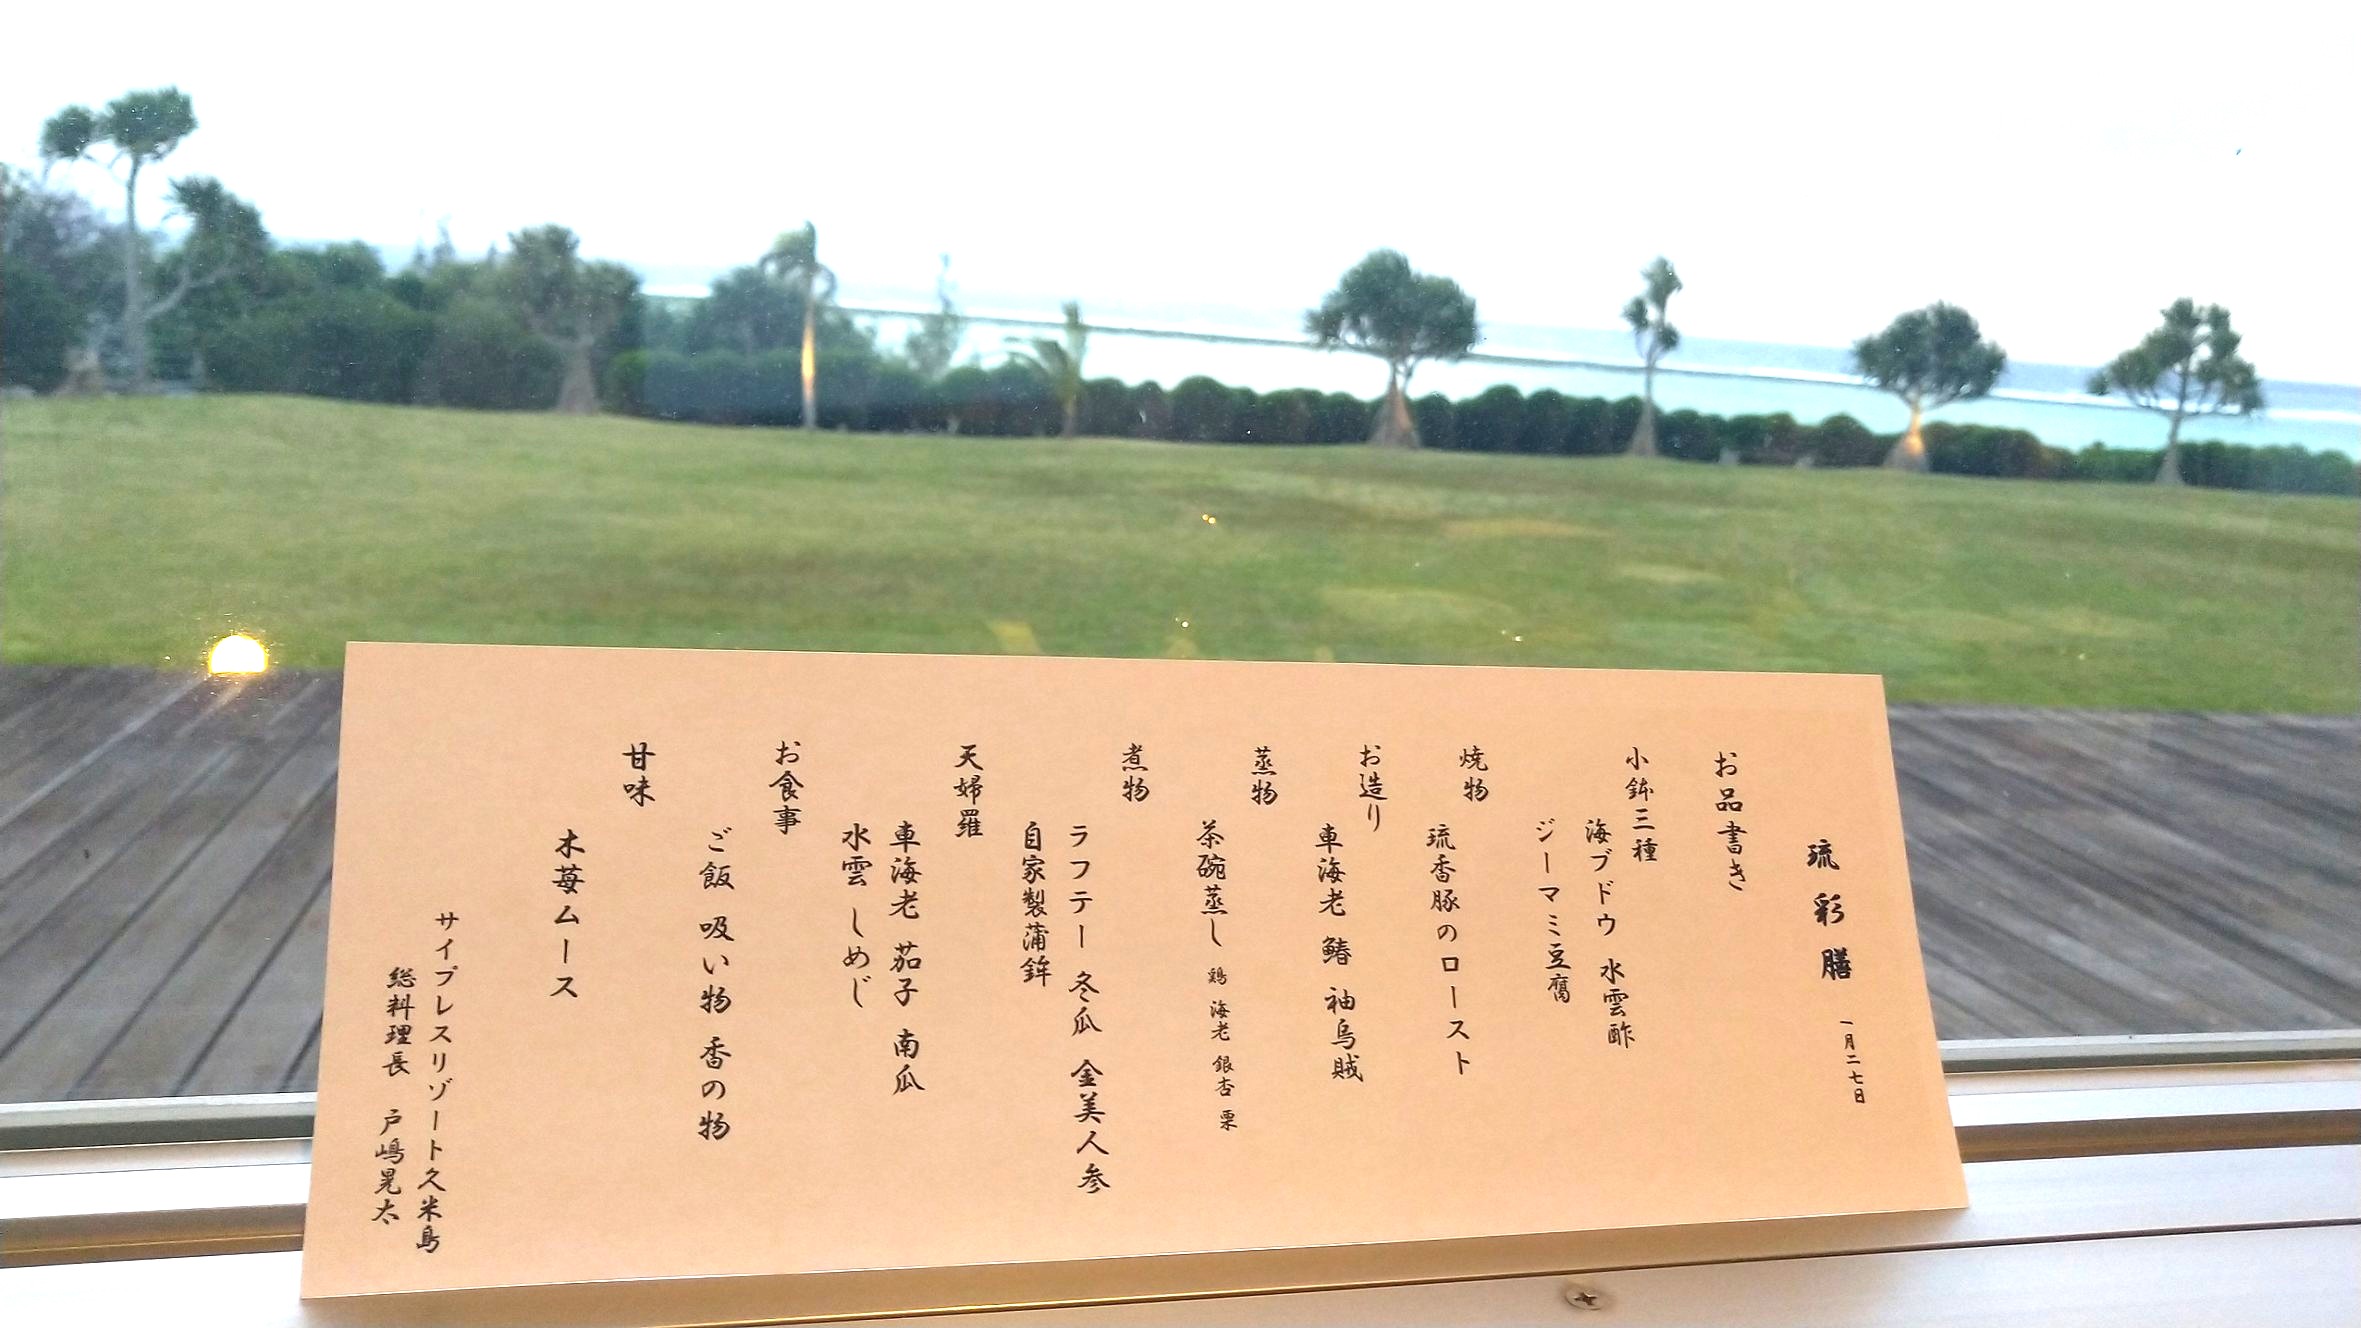 琉彩膳 一月二七日
お品書き
小鉢三種
海ブドウ 水雲酢
ジーマミ豆腐
焼物
琉香豚のロースト
お造り
車海老 鰆 袖烏賊
蒸物
茶碗蒸し 鶏 海老 銀杏 栗
煮物
ラフテー 冬瓜 金美人参
自家製蒲鉾
天婦羅
車海老 茄子 南瓜
水雲 しめじ
お食事
ご飯 吸い物 香の物
甘味
木苺ムース
サイプレスリゾート久米島
総料理長 戸嶋晃太